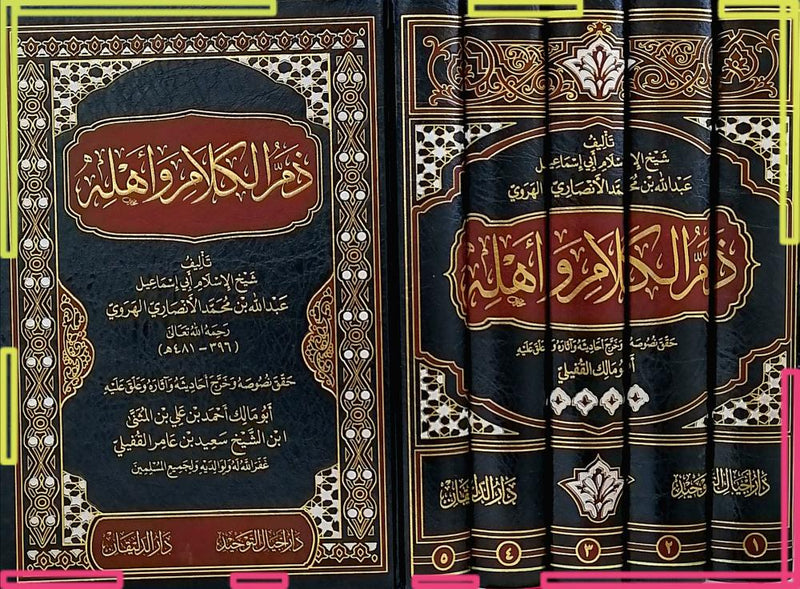 ذم الكلام وأهله
تأليف
شيخ الإسلام أبي إسماعيل
عبد الله بن محمد الأنصاري الهروي
رحمه الله تعالى
(٣٩٦ - ٤٨١هـ)
حقق نصوصه وخرج أحاديثه وآثاره وعلق عليه
أبو مالك أحمد بن علي بن المثنى
ابن الشيخ سعيد بن عامر القفيلي
غفر الله له ولوالديه ولجميع المسلمين
دار أجيال التوحيد دار الدلتقان
تأليف
شيخ الإسلام أبي إسماعيل
عبد الله بن محمد الأنصاري الهروي
ذم الكلام وأهله
حقق نصوصه وخرج أحاديثه وآثاره وعلق عليه
أبو مالك القفيلي
دار أجيال التوحيد دار الدلتقان
١ ٢ ٣ ٤ ٥